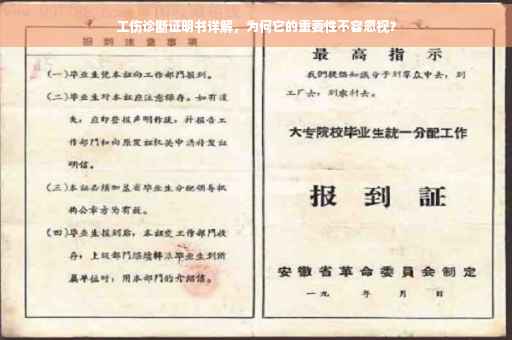 工伤诊断证明书详解，为何它的重要性不容忽视？
报到注意事项
(一)毕业生凭本证向工作部门报到。
(二)毕业生对本证应注意保存。如有遗
失，应即登报声明作废，并报告工
作部门和向原发证机关申请补发证
明信。
(三)本证必须加盖省毕业生分配领导机
构公章方为有效。
(四)毕业生报到后，本证交工作部门收
存；上级部门续办
毕业生到所
属单位时，用本部门的介绍信。
最高指示
我们提倡知识分子到群众中去，到
工厂去，到农村去。
大专院校毕业生統一分配工作
报到証
安徽省革命委員会制定
一九 年 月 日